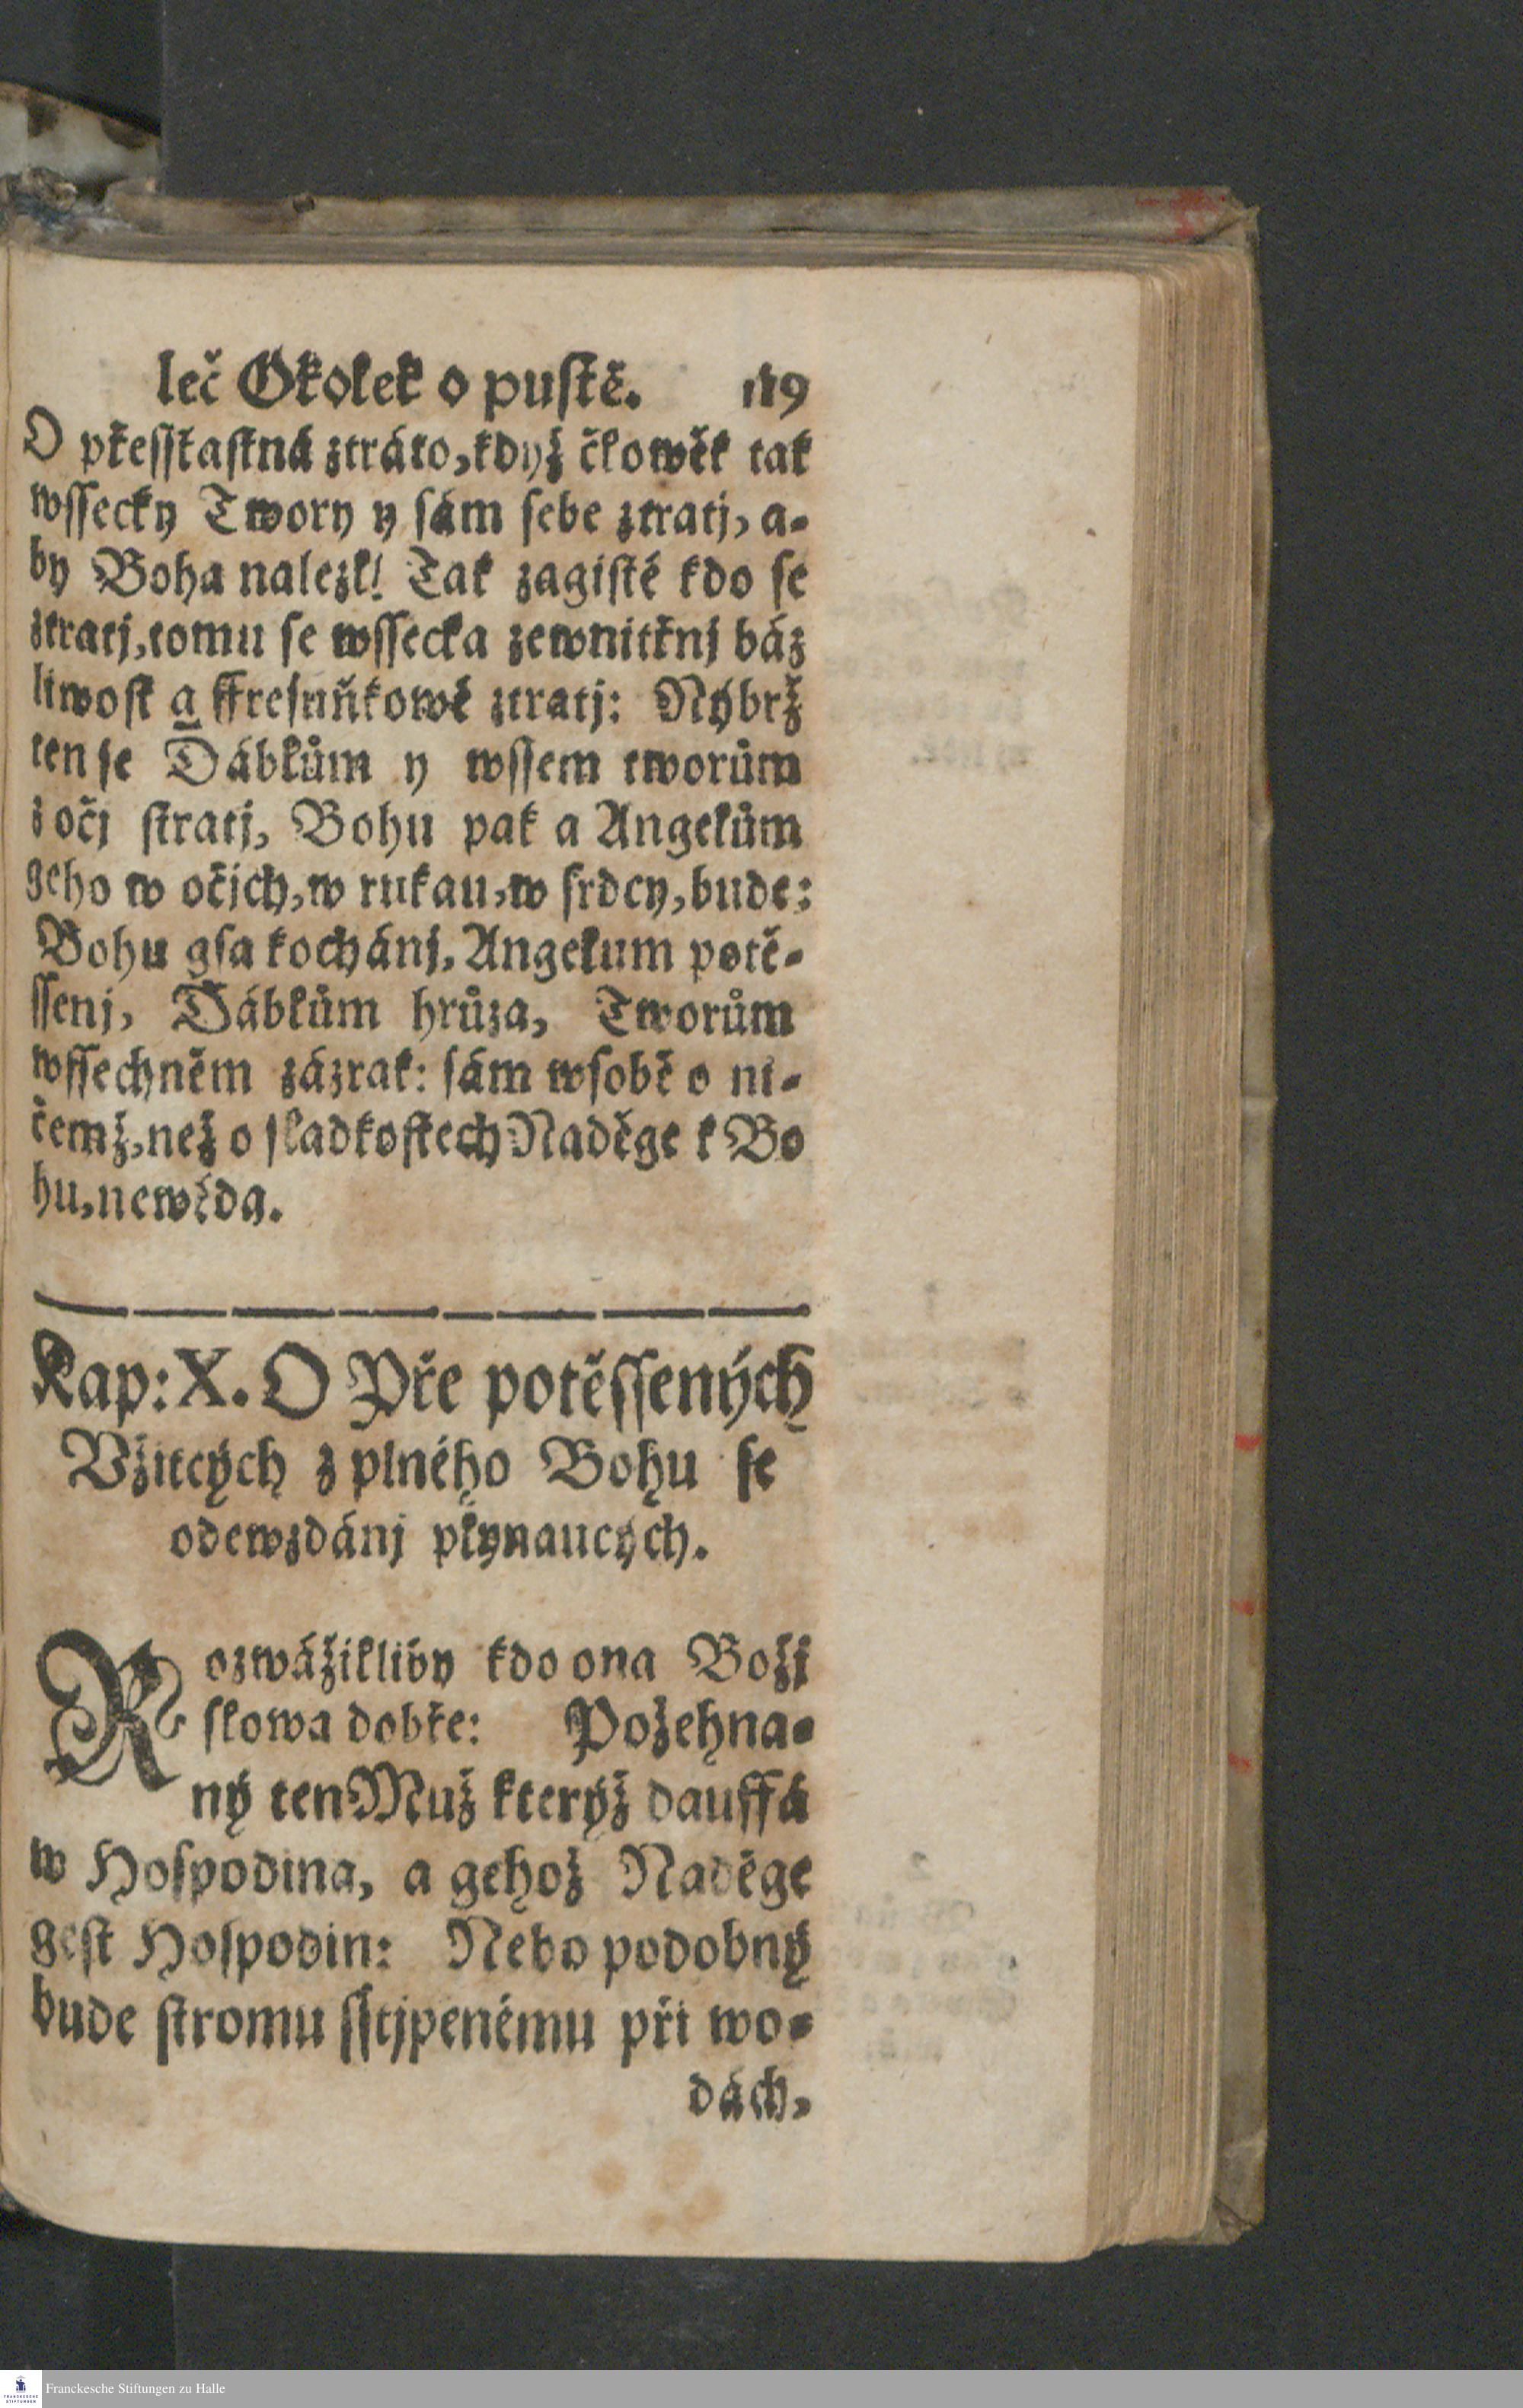 leč Okolek o pustě. 119
O přessťastná ztráto, když čłowěk tak
wssecky Twory y sám sebe ztratj, a-
by Boha nalezł! Tak zagisté kdo se
ztratj, tomu se wssecka zewnitřnj báz
liwost a ffresuňkowé ztratj: Nýbrž
ten se Ďábłům y wssem tworům
z očj stratj, Bohu pak a Angełům
geho w očjch, w rukau, w srdcy, bude:
Bohu gsa kochánj, Angełum potě-
ssenj, Ďábłům hrůza, Tworům
wssechněm zázrak: sám w sobě o ni-
čemž, než o sladkostech Naděge k Bo
hu, newěda.
Kap: X. O Pře potěssených
Vžitcých z plného Bohu se
odewzdánj płynaucých.
Rozwážiłliby kdo ona Božj
słowa dobře: Požehna-
ný ten Muž kterýž dauffá
w Hospodina, a gehož Naděge
gest Hospodin: Nebo podobný
bude stromu sstjpenému při wo-
dách,
Franckesche Stiftungen zu Halle